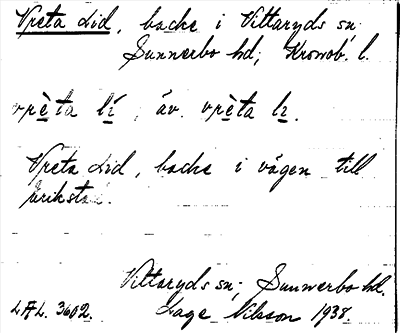 Vreta Lid, backe i Vittaryds sn;
Sunnerbo hd; Kronob. l.
vrèta lí, äv. vrèta lı.
Vreta Lid, backe i vägen till
Vittaryds sn; Sunnerbo hd.
LAL. 3602. Lage Nilsson 1938.